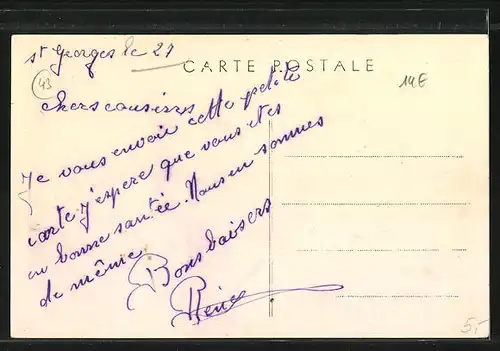 St Georges le 21
CARTE POSTALE
43
14E
chers cousins
Je vous envoir cette petite
carte j'espere que vous etes
en bonne santée. Nous en sommes
de même.
Bons baisers
5.-